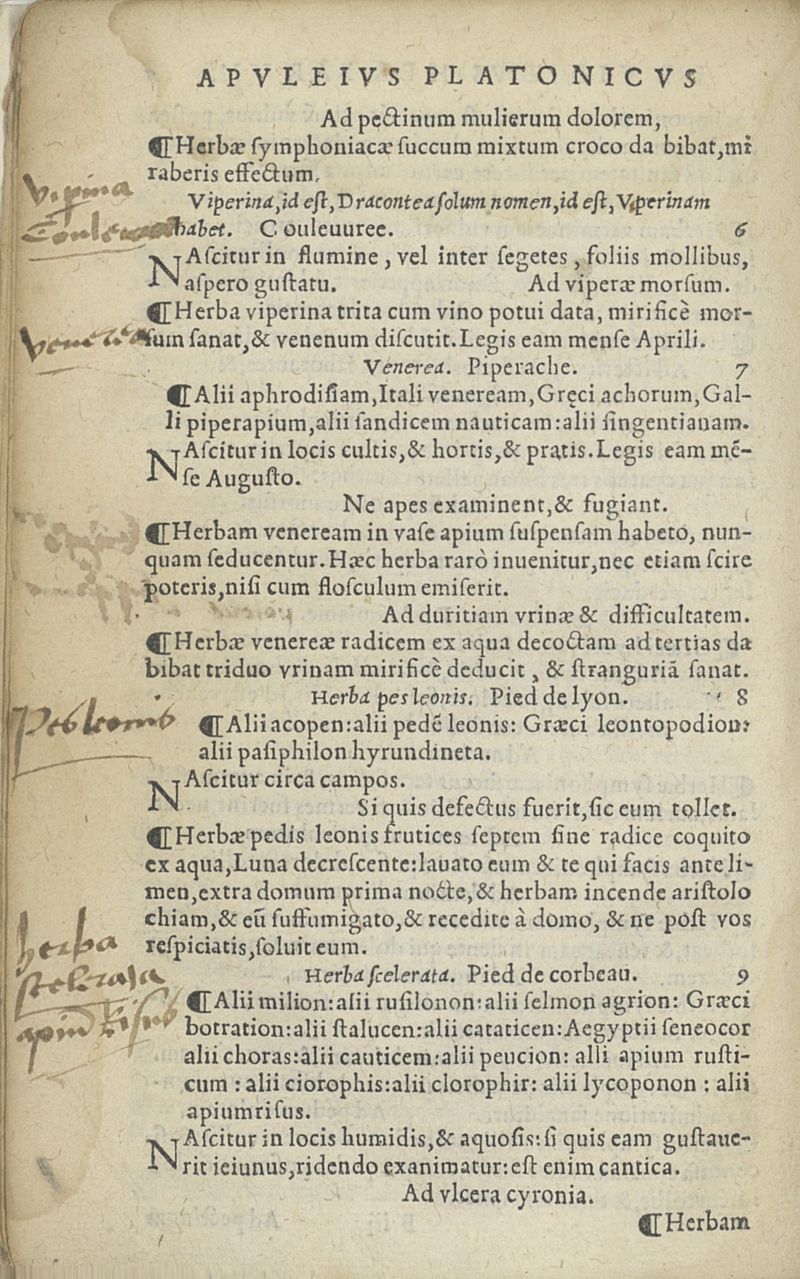 APVLEIVS PLATONICVS
Ad pectinum mulierum dolorem,
¶Herbæ ſymphoniacæ ſuccum mixtum croco da bibat,mi
raberis effectum.
Viperina,id eſt,Dracontea ſolum nomen,id eſt,Viperinam
Vipina
habet. Couleuuree. 6
NAſcitur in flumine, vel inter ſegetes, foliis mollibus,
aſpero guſtatu. Ad viperæ morſum.
¶Herba viperina trita cum vino potui data, mirificè mor-
ſum ſanat,& venenum diſcutit.Legis eam menſe Aprili.
Venerea. Piperache. 7
¶Alii aphrodiſiam,Itali veneream,Gręci achorum,Gal-
li piperapium,alii ſandicem nauticam:alii ſingentianam.
NAſcitur in locis cultis,& hortis,& pratis.Legis eam mē-
ſe Auguſto.
Ne apes examinent,& fugiant.
¶Herbam veneream in vaſe apium ſuſpenſam habeto, nun-
quam ſeducentur.Hæc herba rarò inuenitur,nec etiam ſcire
poteris,niſi cum floſculum emiſerit.
Ad duritiam vrinæ & difficultatem.
¶Herbæ venereæ radicem ex aqua decoctam ad tertias da
bibat triduo vrinam mirificè deducit, & ſtranguriā ſanat.
Herba pes leonis. Pied de lyon. 8
Pes leonis
¶Alii acopen:alii pedē leonis: Græci leontopodion:
alii paſiphilon hyrundineta.
NAſcitur circa campos.
Si quis defectus fuerit,ſic eum tollet.
¶Herbæ pedis leonis frutices ſeptem ſine radice coquito
ex aqua,Luna decreſcente:lauato eum & te qui facis ante li-
men,extra domum prima nocte,& herbam incende ariſtolo
chiam,& eū ſuffumigato,& recedite à domo, & ne poſt vos
herba
reſpiciatis,ſoluit eum.
Herba ſcelerata. Pied de corbeau. 9
¶Alii milion:alii ruſilonon:alii ſelmon agrion: Græci
botration:alii ſtalucen:alii cataticen:Aegyptii ſeneocor
alii choras:alii cauticem:alii peucion: alii apium ruſti-
cum : alii ciorophis:alii clorophir: alii lycoponon : alii
apium riſus.
NAſcitur in locis humidis,& aquoſis:ſi quis eam guſtaue-
rit ieiunus,ridendo exanimatur:eſt enim cantica.
Ad vlcera cyronia.
¶Herbam